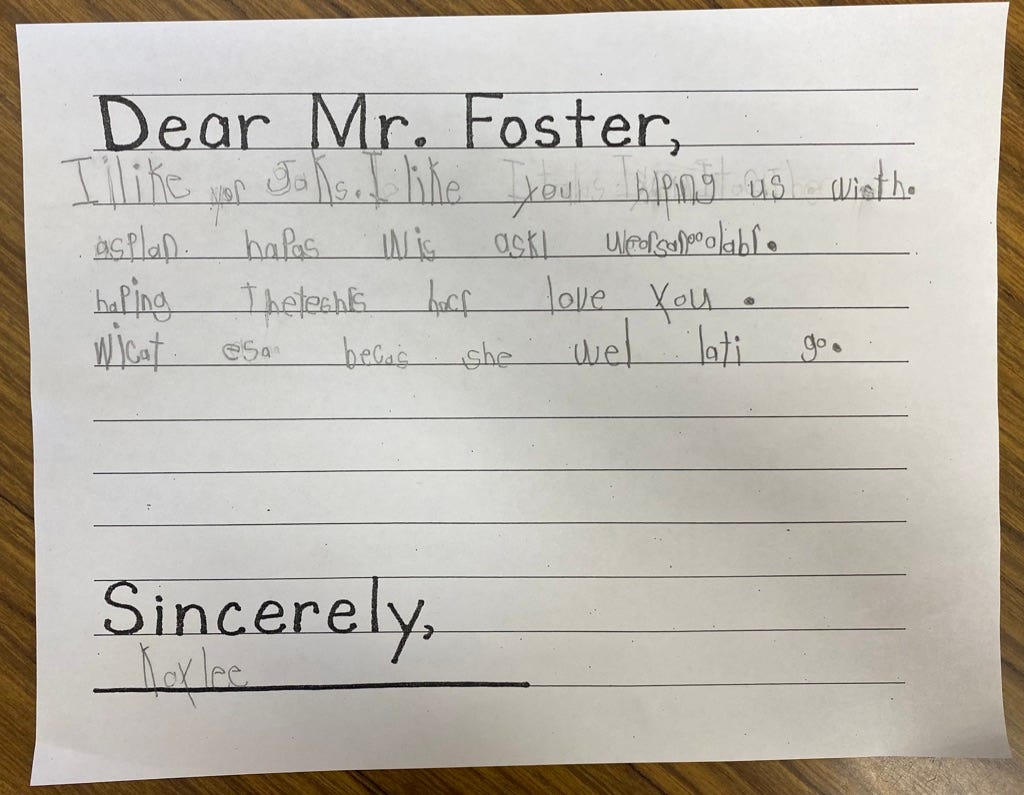 Dear Mr. Foster,
I like yor goks. I like you hlping us with.
asplan. hapas Wis askl
haping Theteehrs hocr love you.
Wicat esa becas she wel lati go.
Sincerely,
Kaylee